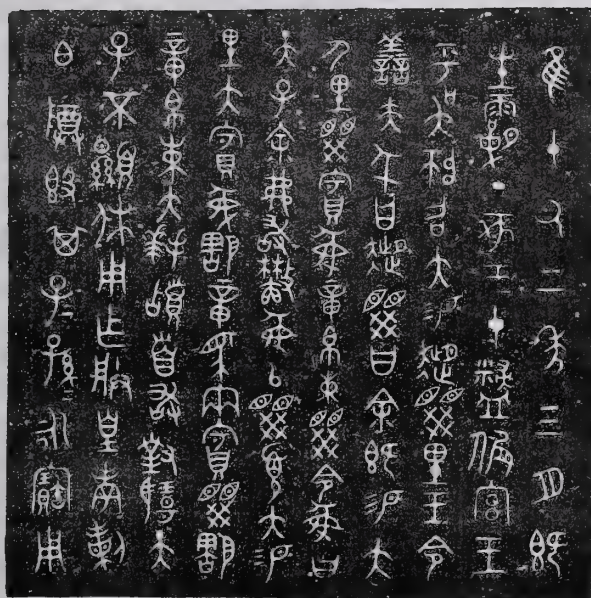 隹十又二年三月既
生霸丁亥王才侲宮王
乎吳師召大易趞睽里王令
善夫豖曰趞睽曰余既易大
乃里睽賓豖章帛束睽令豖曰
天子余弗敢吝豖以睽履大易
里大賓豖章馬兩賓睽
章帛束大拜稽首敢對揚天
子不顯休用乍朕皇考剌
白尊簋其子孫永寶用